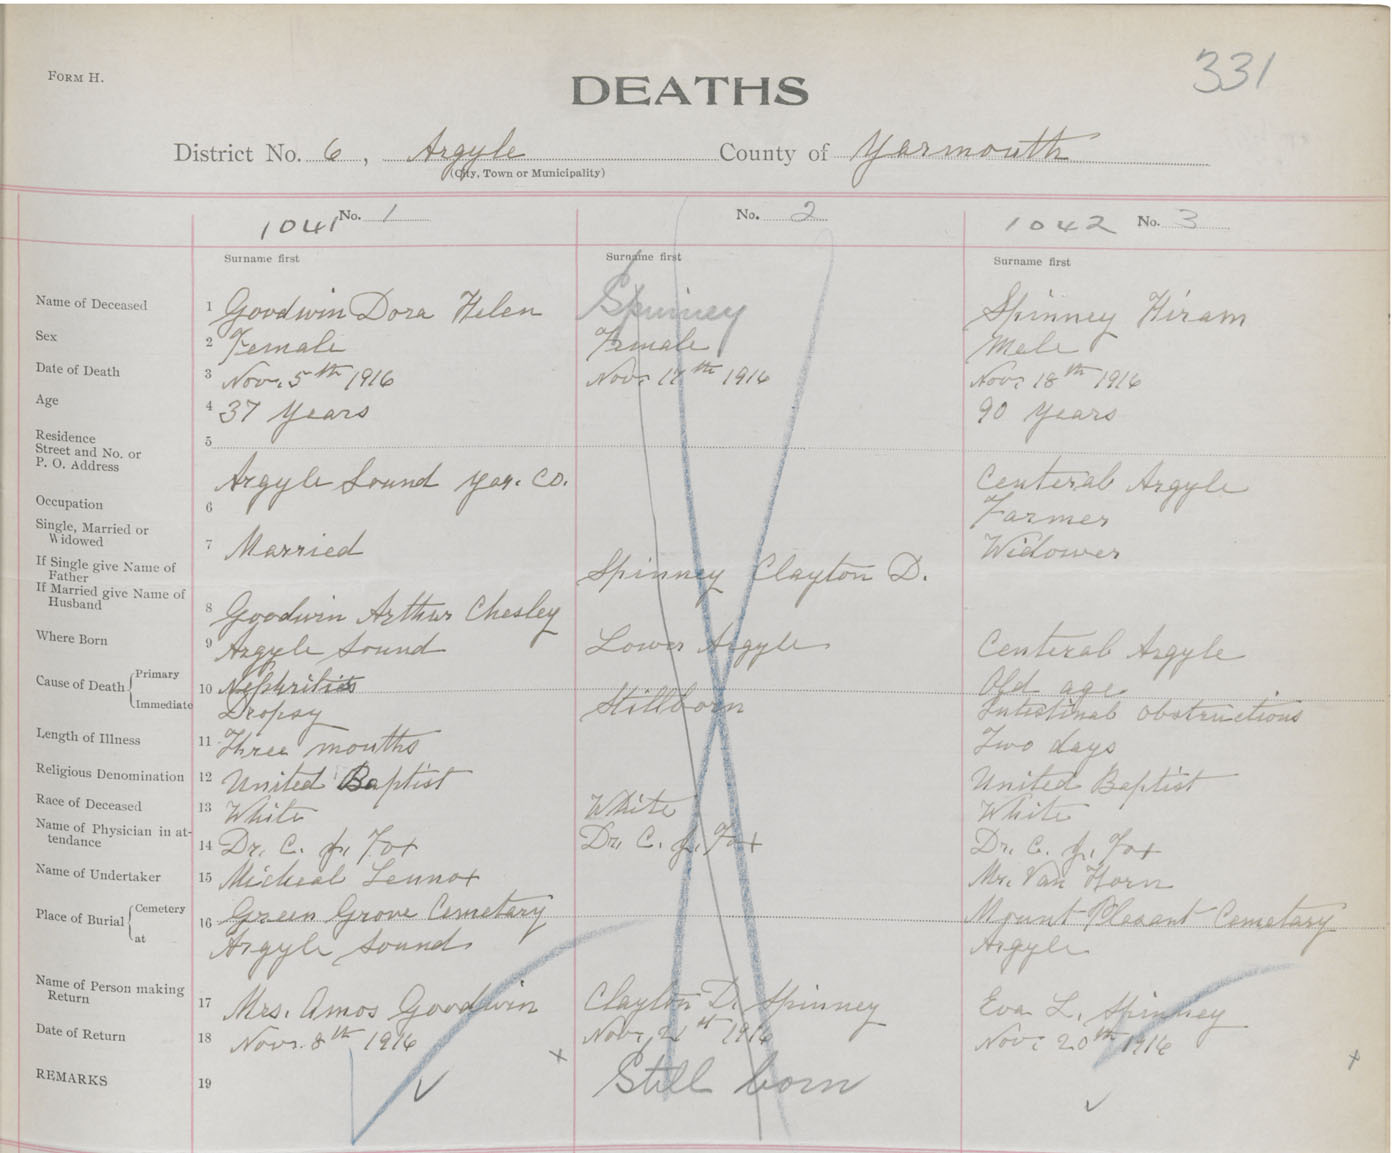 FORM H.
331
DEATHS
District No. 6, Argyle County of Yarmouth
(City, Town or Municipality)
1041 No. 1
No. 2
1042 No. 3
Surname first
Surname first
Surname first
Name of Deceased 1 Goodwin Dora Helen Spinney Spinney Hiram
Sex 2 Female Female Male
Date of Death 3 Nov. 5th 1916 Nov. 17th 1916 Nov. 18th 1916
Age 4 37 Years 90 Years
Residence
Street and No. or
P. O. Address
5 Argyle Sound Yar. Co. Centeral Argyle
Occupation 6 Farmer
Single, Married or
Widowed
7 Married Widower
If Single give Name of
Father
Spinney Clayton D.
If Married give Name of
Husband
8 Goodwin Arthur Chesley
Where Born 9 Argyle Sound Lower Argyle Centeral Argyle
Cause of Death Primary 10 Nephritis Old age
Immediate Dropsy Stillborn Intestinal Obstructions
Length of Illness 11 Three months Two days
Religious Denomination 12 United Baptist United Baptist
Race of Deceased 13 White White White
Name of Physician in at-
tendance
14 Dr. C. J. Fox Dr. C. J. Fox Dr. C. J. Fox
Name of Undertaker 15 Micheal Lennox Mr. Van Horn
Place of Burial Cemetery 16 Green Grove Cemetary Mount Pleasant Cemetary
at Argyle Sound Argyle
Name of Person making
Return
17 Mrs. Amos Goodwin Clayton D. Spinney Eva L. Spinney
Date of Return 18 Nov. 8th 1916 Nov. 21st 1916 Nov. 20th 1916
REMARKS 19 Still born